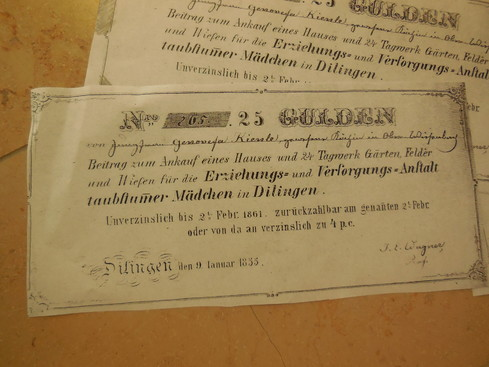 25 GULDEN
Beitrag zum Ankauf eines Hauses und 24 Tagwerk Gärten, Felder
und Wiesen für die Erziehungs= und Versorgungs=Anstalt
taubstumer Mädchen in Dilingen.
Unverzinslich bis 2t Febr.
No 205. 25 GULDEN
von Jungfrau Genovefa Kiessle, in Ober
Beitrag zum Ankauf eines Hauses und 24 Tagwerk Gärten, Felder
und Wiesen für die Erziehungs= und Versorgungs=Anstalt
taubstumer Mädchen in Dilingen.
Unverzinslich bis 2t Febr. 1861. zurückzahlbar am genanten 2t Febr.
oder von da an verzinslich zu 4 p.c.
Wagner
Dilingen den 9 Januar 1855.